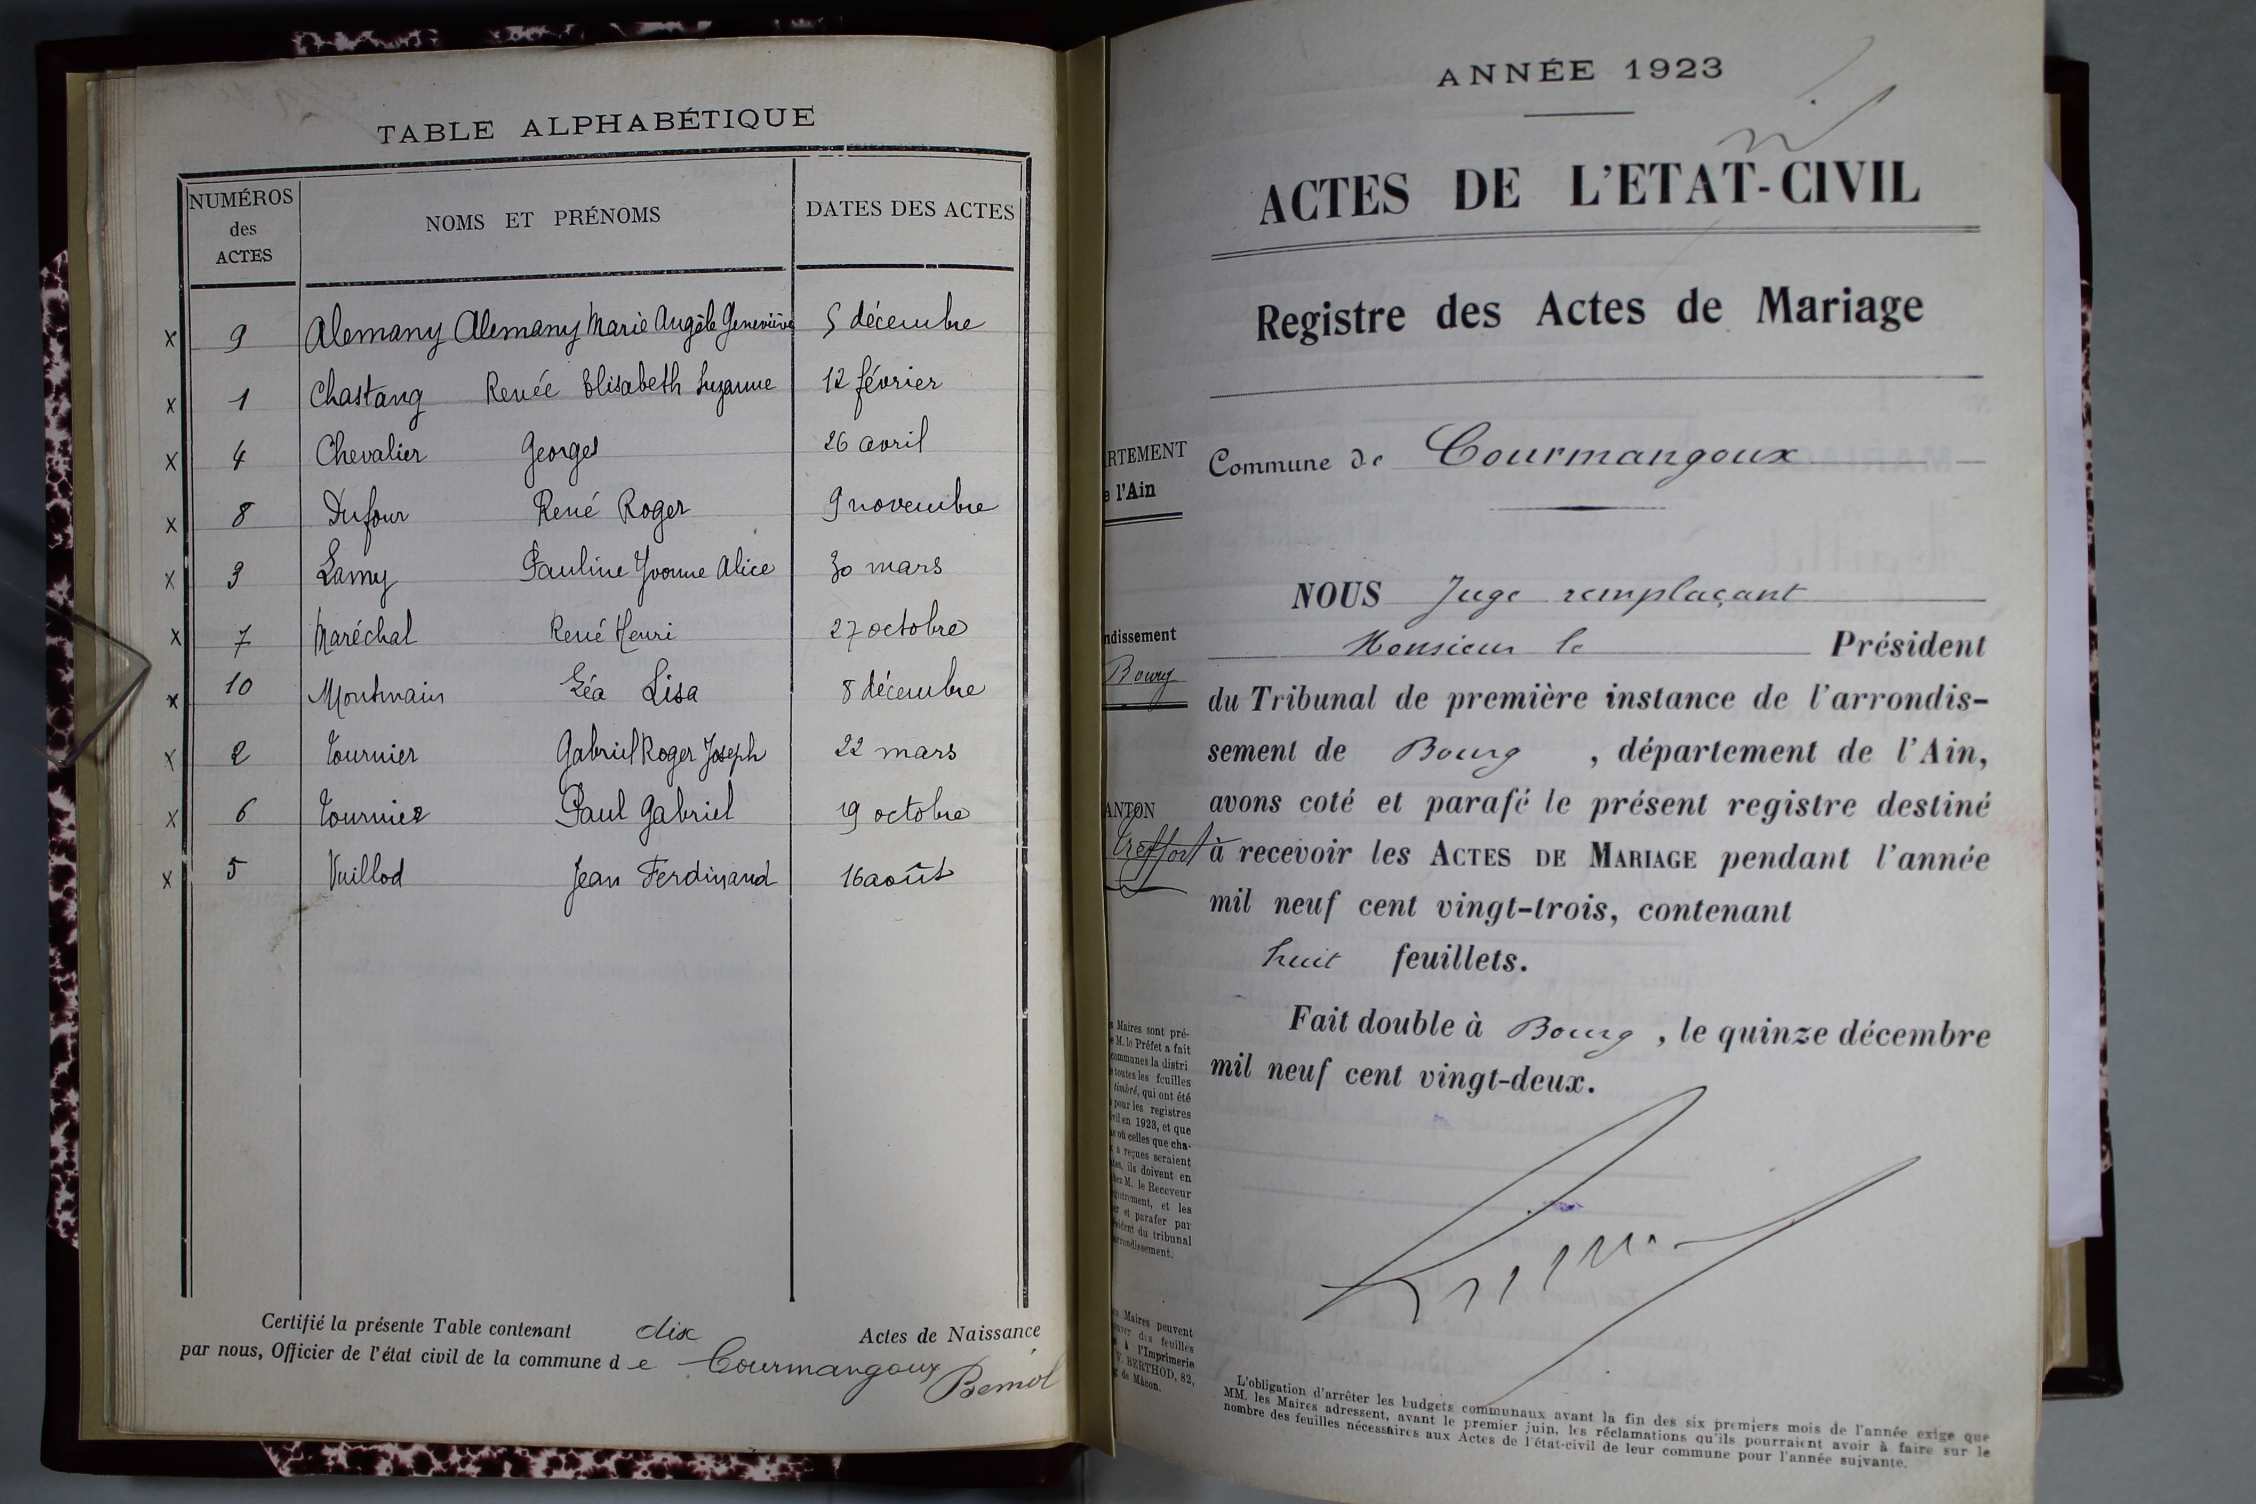 TABLE ALPHABÉTIQUE
NUMÉROS des ACTES
NOMS ET PRÉNOMS
DATES DES ACTES
x 9 Alemany Alemany Marie Angèle Geneviève 5 décembre
x 1 Chastang Renée Elisabeth Suzanne 12 février
x 4 Chevalier Georges 26 avril
x 8 Dufour René Roger 9 novembre
x 3 Lamy Pauline Yvonne Alice 30 mars
x 7 Maréchal René Henri 27 octobre
x 10 Montmain Léa Lisa 8 décembre
x 2 Tournier Gabriel Roger Joseph 22 mars
x 6 Tournier Paul Gabriel 19 octobre
x 5 Vuillod Jean Ferdinand 16 août
Certifié la présente Table contenant dix Actes de Naissance
par nous, Officier de l'état civil de la commune de Courmangoux
ANNÉE 1923
ACTES DE L'ETAT-CIVIL
Registre des Actes de Mariage
RTEMENT
e l'Ain
ndissement
Bourg
ANTON
Treffort
Commune de Courmangoux
NOUS Juge remplaçant
Monsieur le Président
du Tribunal de première instance de l'arrondis-
sement de Bourg, département de l'Ain,
avons coté et parafé le présent registre destiné
à recevoir les ACTES DE MARIAGE pendant l'année
mil neuf cent vingt-trois, contenant
huit feuillets.
Fait double à Bourg, le quinze décembre
mil neuf cent vingt-deux.
Maires sont pré-
M. le Préfet a fait
communes la distri
toutes les feuilles
timbré, qui ont été
pour les registres
vil en 1923, et que
où celles que cha-
a reçues seraient
ils doivent en
M. le Receveur
et les
et parafer par
du tribunal
Maires peuvent
des feuilles
à l'Imprimerie
V. BERTHOD, 82,
de Mâcon.
L'obligation d'arrêter les budgets communaux avant la fin des six premiers mois de l'année exige que
MM. les Maires adressent, avant le premier juin, les réclamations qu'ils pourraient avoir à faire sur le
nombre des feuilles nécessaires aux Actes de l'état-civil de leur commune pour l'année suivante.